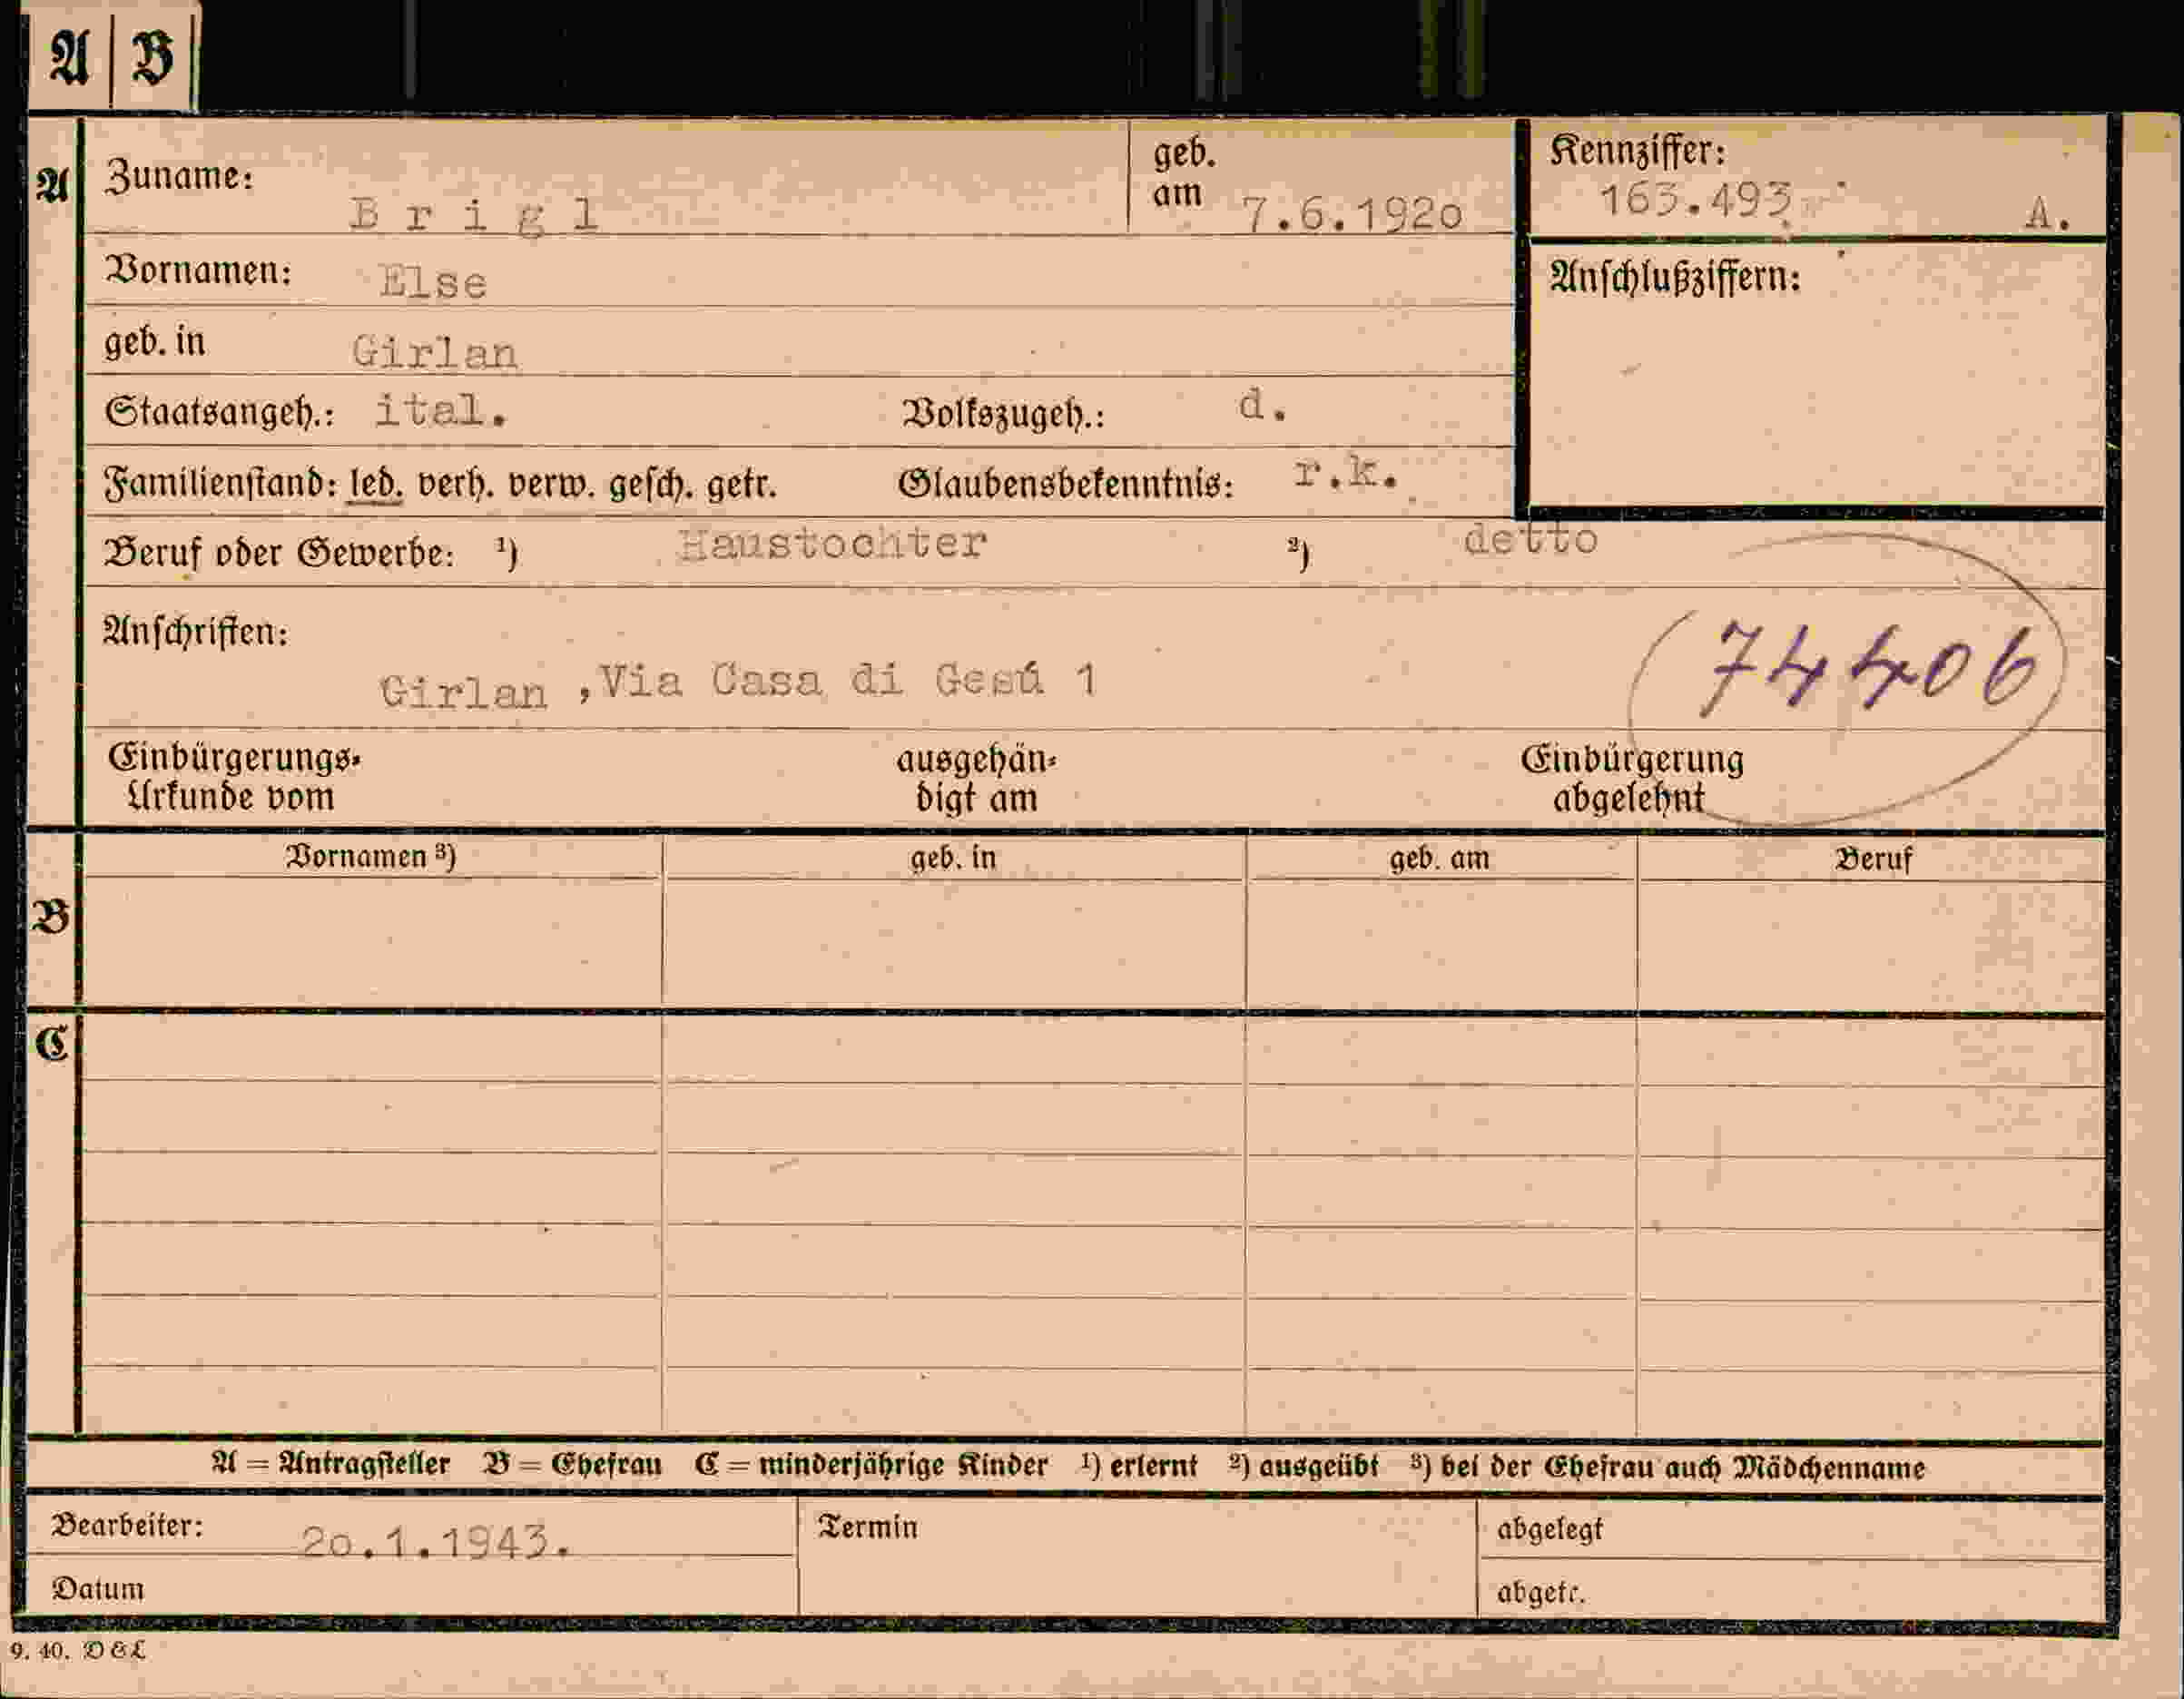 A | B
A Zuname: B r i g l geb. am 7.6.1920 Kennziffer: 163.493 A.
Vornamen: Else Anschlußziffern:
geb. in Girlan
Staatsangeh.: ital. Volkszugeh.: d.
Familienstand: led. verh. verw. gesch. getr. Glaubensbekenntnis: r.k.
Beruf oder Gewerbe: ¹) Haustochter ²) detto
Anschriften:
Girlan ,Via Casa di Gesú 1
74406
Einbürgerungs- ausgehän- Einbürgerung
Urkunde vom digt am abgelehnt
B Vornamen ³) geb. in geb. am Beruf
C
A = Antragsteller B = Ehefrau C = minderjährige Kinder ¹) erlernt ²) ausgeübt ³) bei der Ehefrau auch Mädchenname
Bearbeiter: 20.1.1943. Termin abgelegt
Datum abgetr.
9. 40. D & L